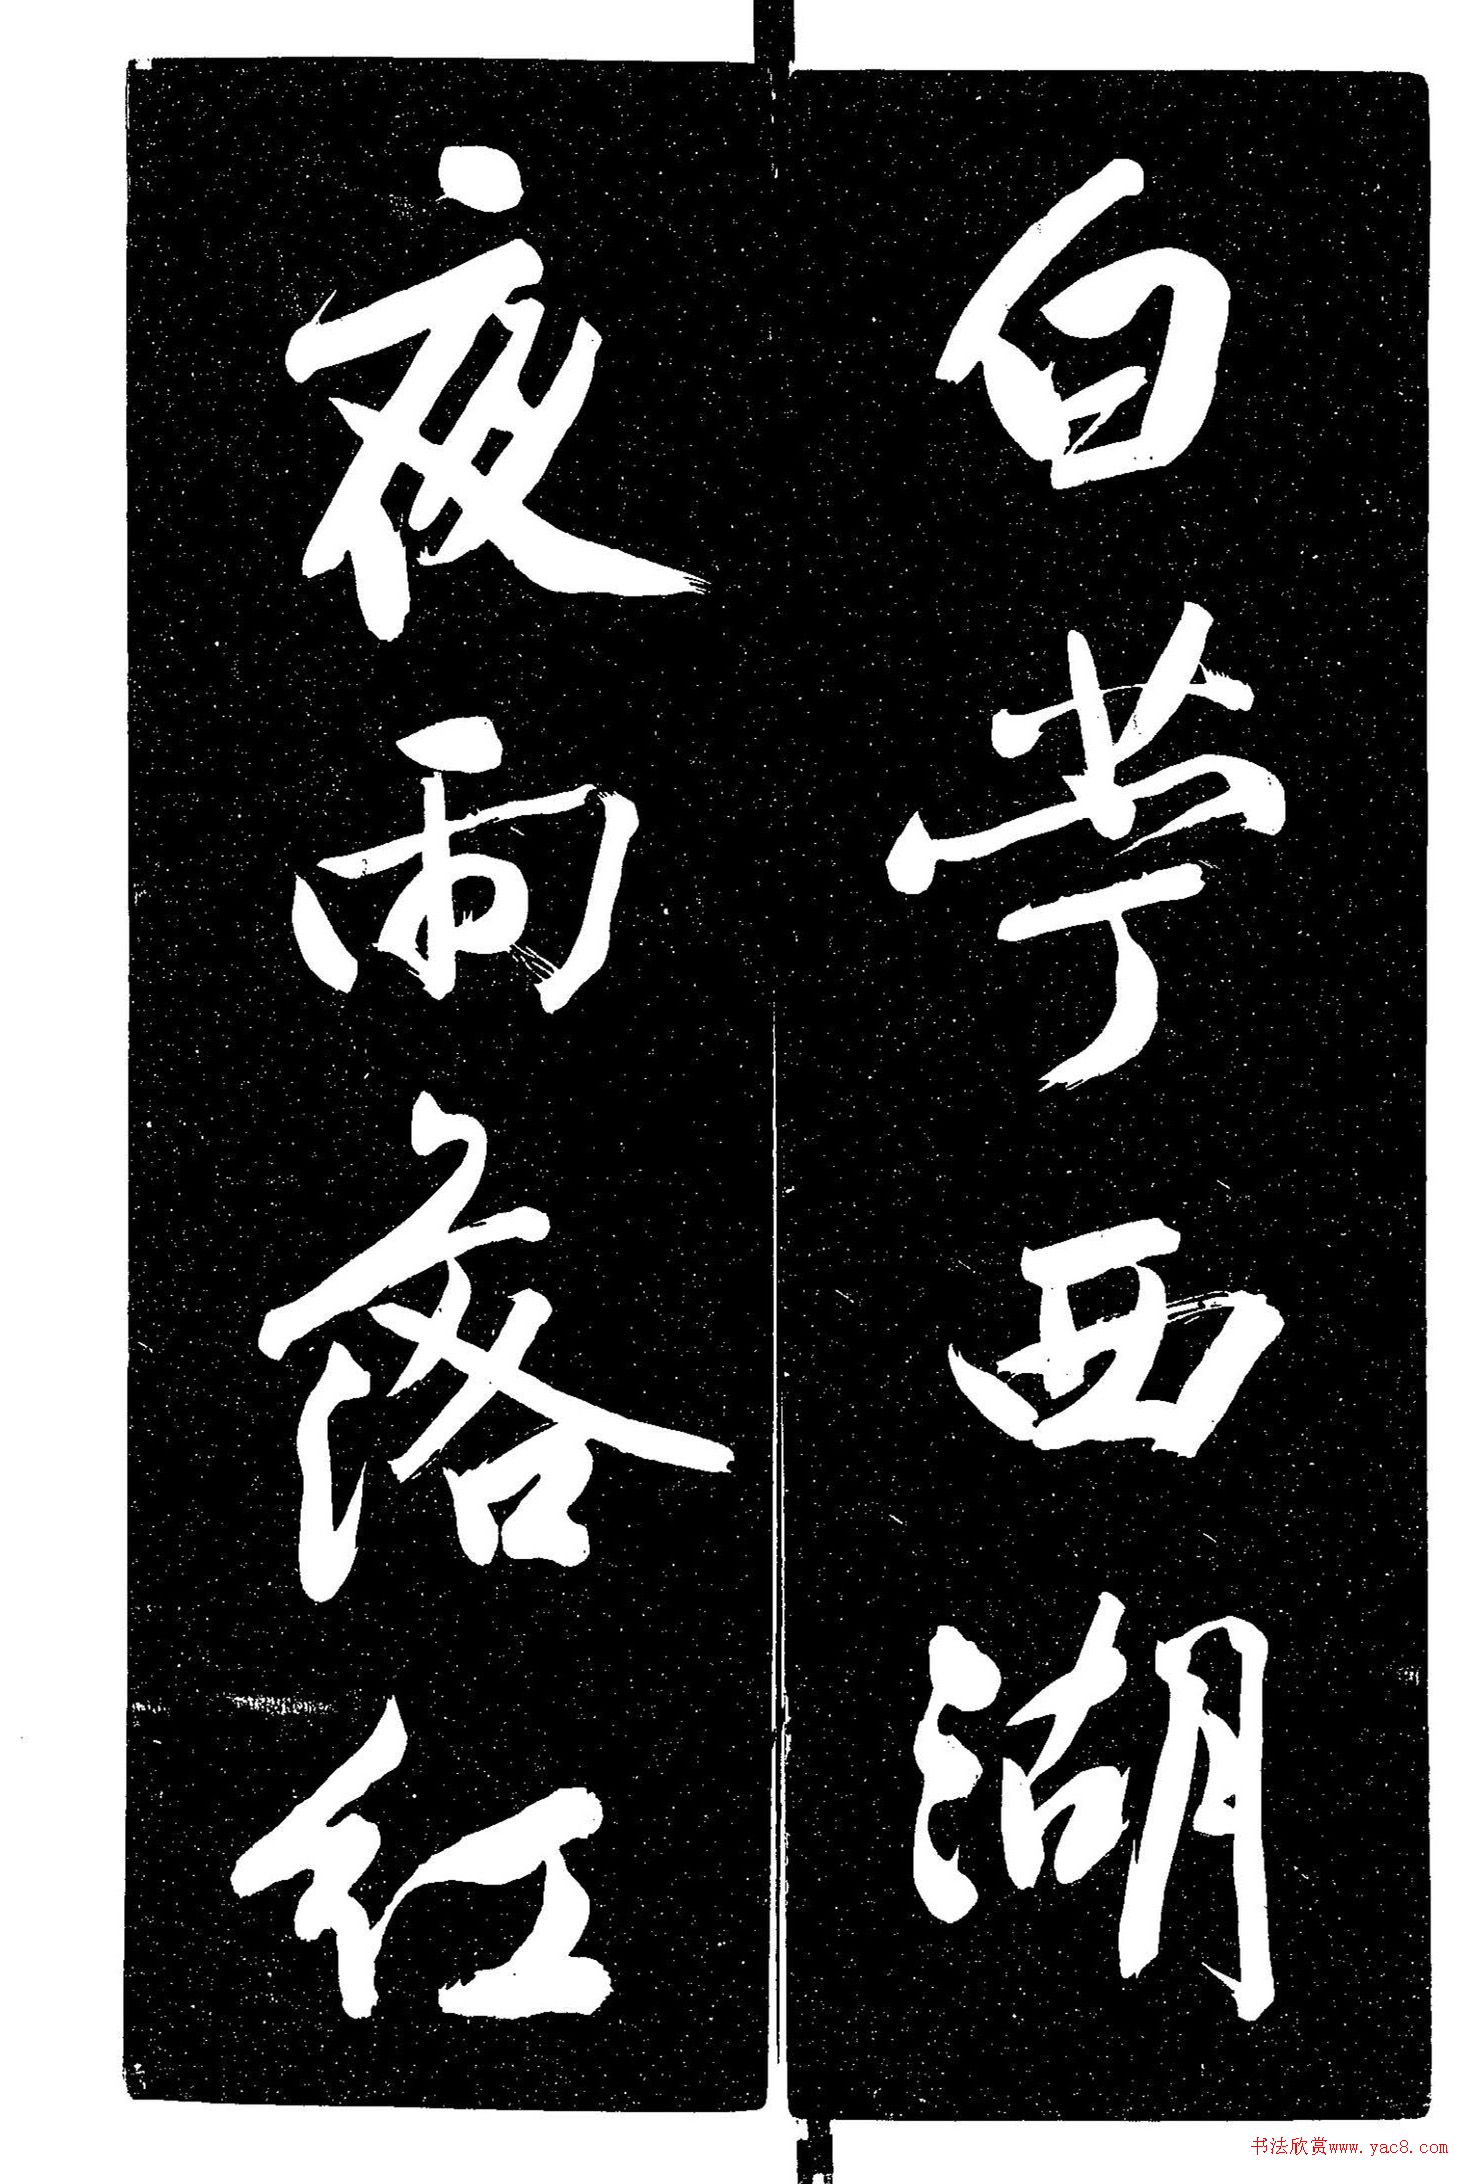 白苧西湖
夜雨落紅
书法欣赏www.yac8.com